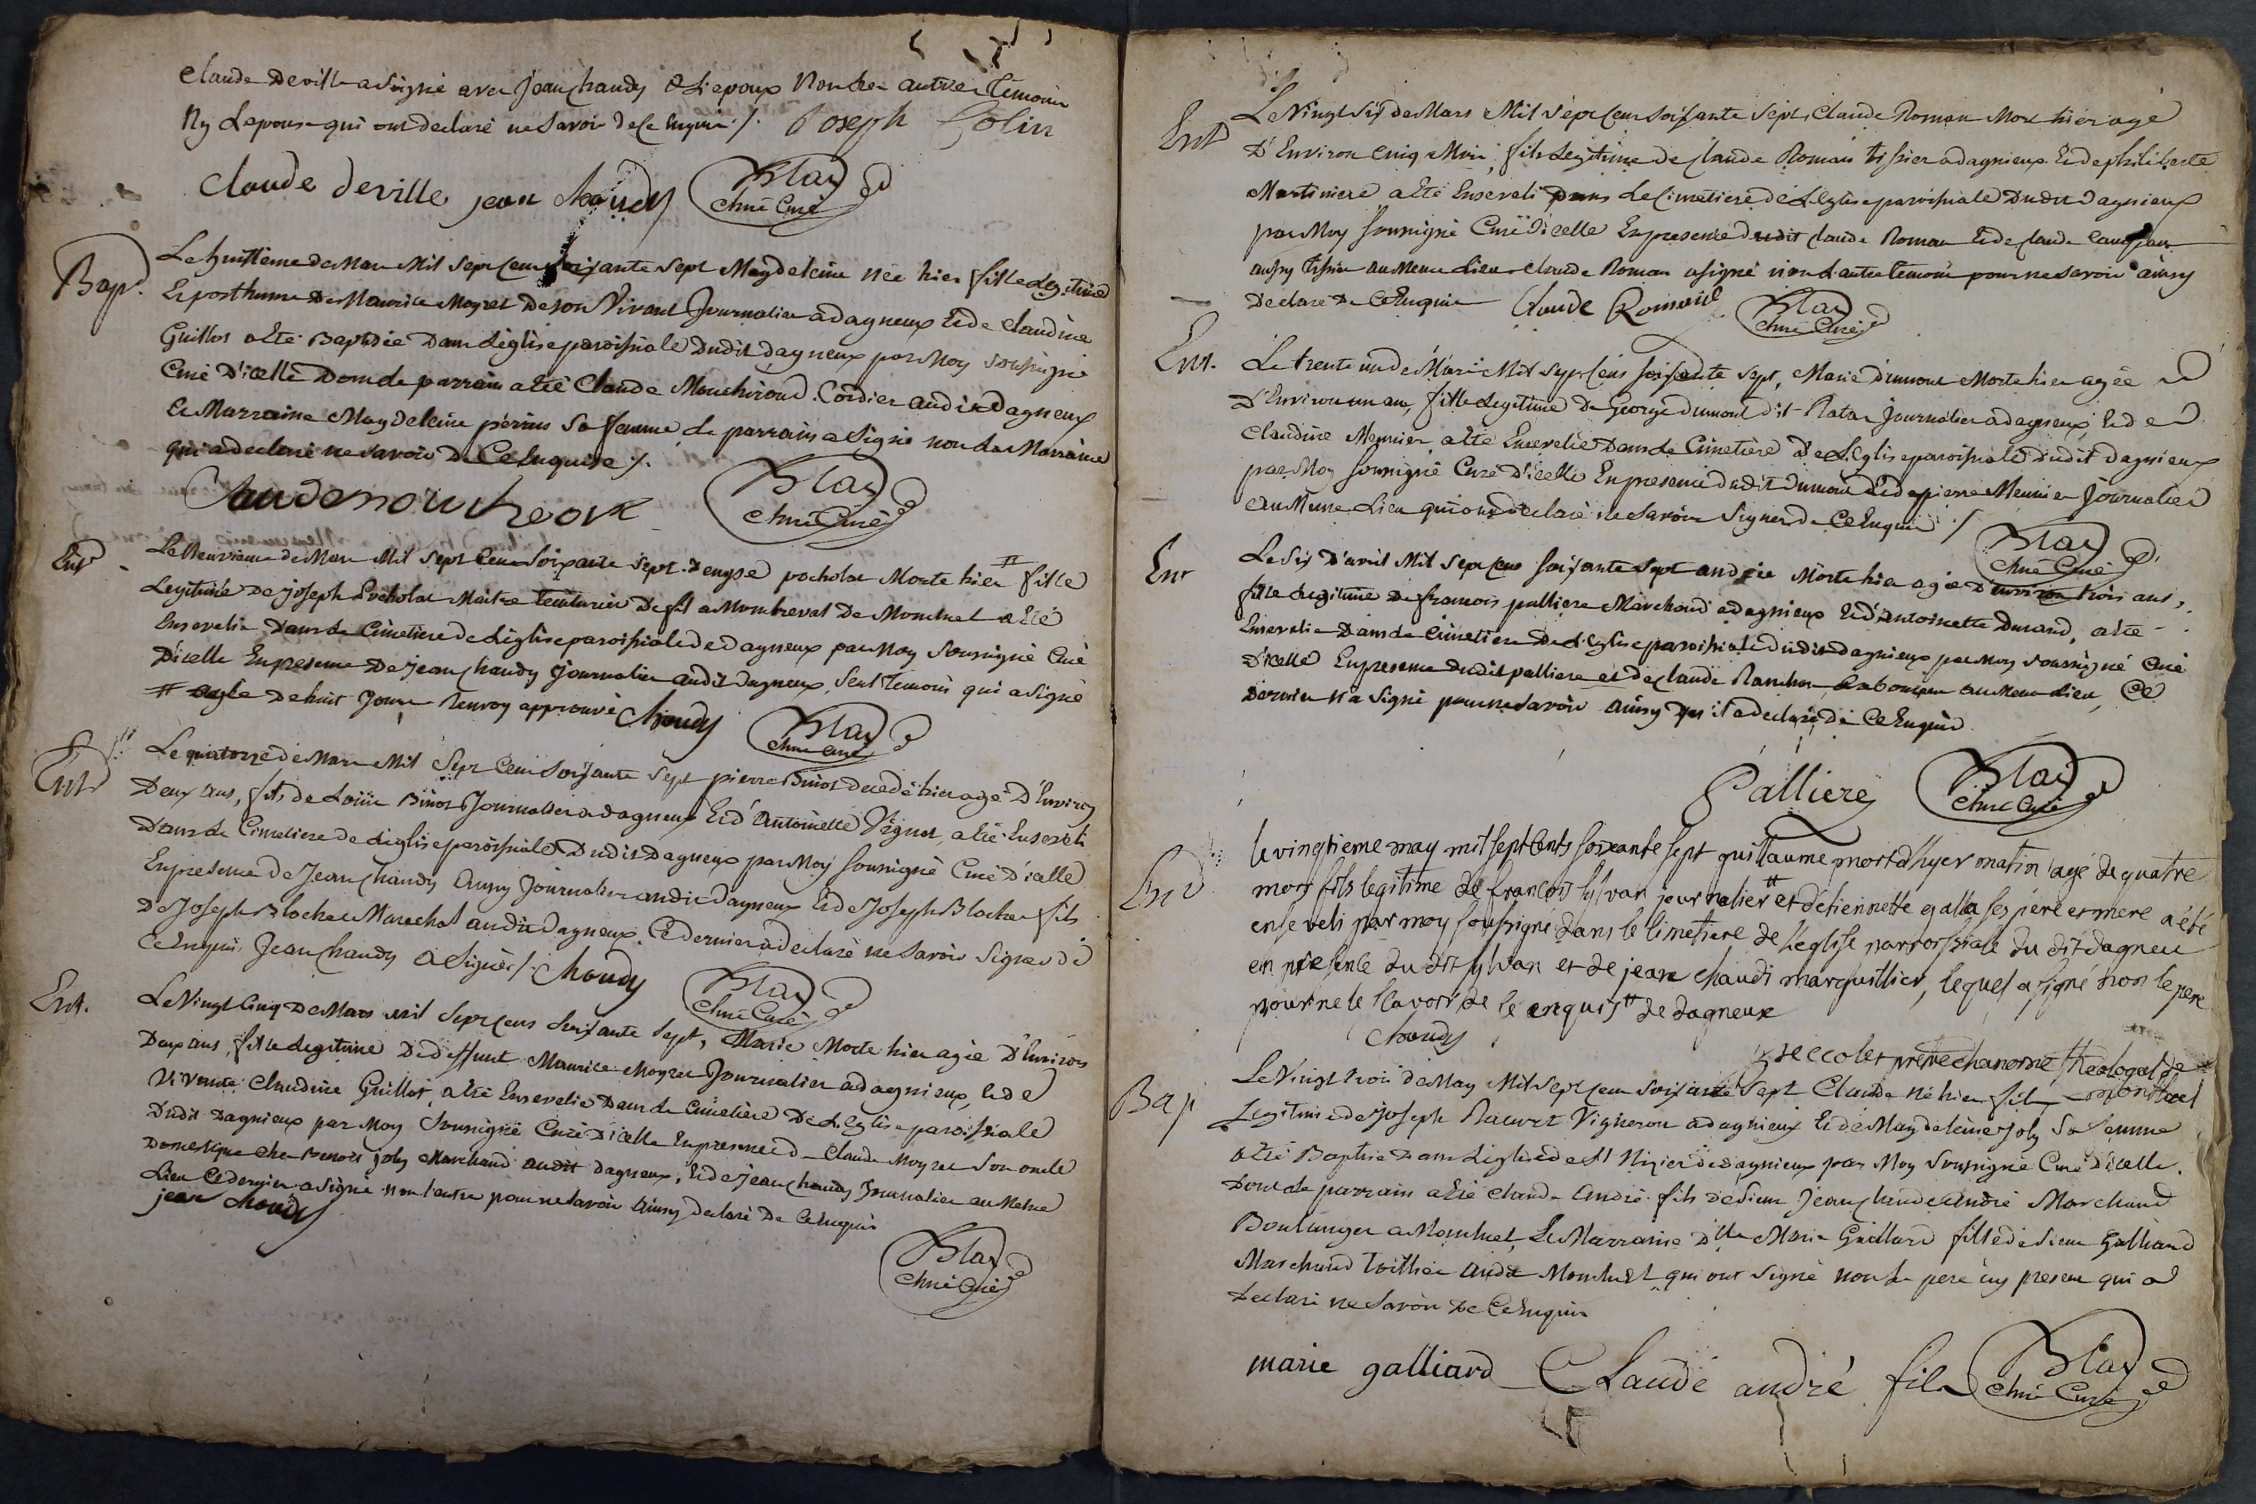 Claude Deville a Signé avec jean Chaudy & L'epoux Non les autres temoins
Ny L'epouse qui ont declaré ne Savoir de Ce Enquis ./. Joseph Colin
Claude deville jean Chaudy Blay
chne Curé
Bap.
Le huitième de Mars Mil Sept Cens soixante Sept Magdeleine née hier fille Legitime
Et posthume De Maurice Moyret De son Vivant Journalier a dagneux Et de Claudine
Guillot a Eté Baptisée Dans L'église paroissiale Dudit dagneux par Moy soussigné
Curé D'icelle Dont Le parrain a Eté Claude Mouchiroud Cordier audit Dagneux
Et Marraine Magdeleine perrin Sa femme Le parrain a Signé non La Marraine
qui a declaré ne savoir De Ce Enquise ./.
Claude Blay
chne Curé
Ent
Le Neuvieme de Mars Mil Sept Cens Soixante Sept Denyse pochola Morte hier # fille
Legitime De joseph pochola Maitre teinturier De fil a Montreval De Montluel a Eté
Ensevelie Dans Le Cimetiere de L'église paroissiale de dagneux par Moy Soussigné Curé
D'icelle En presence De jean Chaudy Journalier audit dagneux, Seul Temoin qui a signé
# agée de huit Jours Renvoy approuvé Choudy Blay
chne curé
Ent
Le quatorze de Mars Mil Sept Cens Soixante Sept pierre Binot decedé hier agé D'Environ
Deux ans, fils de Loüis Binot Journalier a dagneux Et d'Antoinette Vignot, a Eté Enseveli
Dans Le Cimetiere de L'église paroissiale Dudit Dagneux par Moy Soussigné Curé D'icelle
En presence de Jean Chaudy Aussy Journalier audit dagneux Et de Joseph Blocher fils
De Joseph Blocher Marechal audit Dagneux. Ce dernier a declaré ne Savoir Signer de
Ce Enquis, Jean Chaudy a Signé ./. Choudy Blay
chne Curé
Ent.
Le Vingt Cinq De Mars mil Sept Cens Soixante Sept, Marie Morte hier agée D'Environ
Deux ans fille Legitime De deffunt Maurice Moyret Journalier a dagnieux, Et de
Vivante Claudine Guillot, a Eté Ensevelie Dans Le Cimetière De L'Eglise paroissiale
Dudit Dagnieux par Moy Soussigné Curé D'icelle En presence de Claude Moyret Son oncle
Domestique chez Benoit joly Marchand audit dagneux, Et de jean Chaudy Journalier au Meme
Lieu Ce dernier a Signé non l'autre pour ne Savoir Ainsy declaré De Ce Enquis
jean Choudy
Blay
chne Curé
Ent
Le Vingt Six de Mars Mil Sept Cens Soixante Sept, Claude Roman Mort hier agé
D'Environ Cinq Mois, fils Legitime de Claude Roman tissier a dagnieux Et de philiberte
Martiniere a Eté Enseveli Dans Le Cimetiere de L'Eglise paroissiale Dudit Dagnieux
par Moy Soussigné Curé D'icelle En presence dudit Claude Roman Et de Claude
aussy tissier au Meme Lieu Claude Roman a signé non L'autre temoin pour ne savoir ainsy
Declaré De Ce Enquis Claude Romand Blay
chne Curé
Ent.
Le trente un de Mars Mil Sept Cens Soixante Sept, Marie Dumont Morte hier agée
D'Environ un an, fille Legitime De George dumont dit Rata Journalier a dagneux, Et de
Claudine Meunier a Eté Ensevelie Dans Le Cimetière de L'Eglise paroissiale Dudit Dagnieux
par Moy Soussigné Curé D'icelle En presence dudit Dumont Et de pierre Meunier Journalier
au Meme Lieu qui ont declaré ne Savoir Signer de Ce Enquis ./.
Blay
chne Curé
Ent
Le Six D'avril Mil Sept Cens Soixante Sept andrée Morte hier agée D'environ trois ans,
fille Legitime De francois palliere Marchand a dagnieux Et d'antoinette Durand, a Eté
Ensevelie Dans Le Cimetiere De L'Eglise paroissiale Dudit Dagnieux par Moy Soussigné Curé
D'icelle En presence dudit palliere et de Claude Ranchon Laboureur au Meme Lieu, Ce
Dernier n'a Signé pour ne Savoir Ainsy qu'il a declaré, de Ce Enquis
Palliere Blay
chne Curé
Ent
le vingtieme may mil sept cents soixante sept guillaume mort d'hyer matin agé de quatre
mois fils legitime de francois sylvan journalier # et d'etiennette galla ses père et mere a été
enseveli par moy soussigné dans le cimetiere de l'eglise parroissiale du dit dagneu
en presence du dit sylvan et de jean chaudi marguillier, lequel a signé non le pere
pour ne le scavoir de ce enquis # de dagneux
Choudy
decolet prêtre chanoine theologal de
montluel
Bap
Le Vingt trois de May Mil Sept Cens Soixante Sept Claude Né hier fils
Legitime de joseph Racurt Vigneron a dagnieux Et de Magdeleine Joly Sa femme
a Eté Baptisé Dans L'église de St Nizier de dagnieux par Moy Soussigné Curé D'icelle.
Dont Le parrain a Eté Claude André fils de Sieur Jean Claude André Marchand
Boulanger a Montluel, Et Marraine dlle Marie Gaillard fille de Sieur Galliard
Marchand toillier audit Montluel qui ont Signé non Le pere icy present qui a
declaré ne Savoir De Ce Enquis
marie galliard Claude andré fils Blay
chne Curé